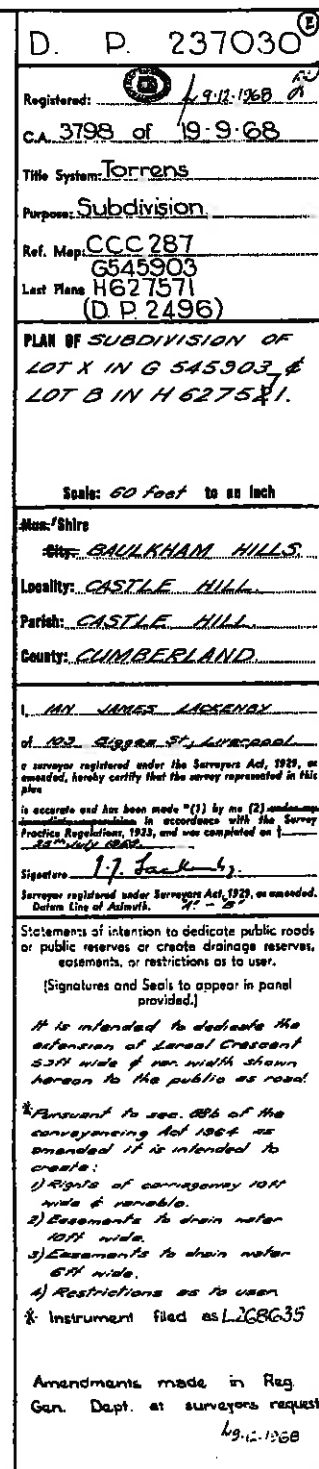 D. P. 237030 E
Registered: 9.12.1968
C.A. 3798 of 19-9-68
Title System: Torrens
Purpose: Subdivision
Ref. Map: CCC 287
G545903
Last Plans H627571
(D. P. 2496)
PLAN OF SUBDIVISION OF
LOT X IN G 545903 &
LOT B IN H 627571.
Scale: 60 feet to an inch
Mun./Shire
City: BAULKHAM HILLS
Locality: CASTLE HILL
Parish: CASTLE HILL
County: CUMBERLAND
I, IAN JAMES LACKENBY
of 103 St, Liverpool
a surveyor registered under the Surveyors Act, 1929, as
amended, hereby certify that the survey represented in this
plan
is accurate and has been made *(1) by me (2) under my
immediate supervision in accordance with the Survey
Practice Regulations, 1933, and was completed on †
25th July
Signature
Surveyor registered under Surveyors Act, 1929, as amended.
Datum Line of Azimuth. "A" - "B"
Statements of intention to dedicate public roads
or public reserves or create drainage reserves,
easements, or restrictions as to user.
(Signatures and Seals to appear in panel
provided.)
It is intended to dedicate the
extension of Crescent
wide & var. width shown
hereon to the public as road.
*Pursuant to sec. 88b of the
conveyancing Act 1964 as
amended it is intended to
create:
1) Rights of carriageway 10ft
wide & variable.
2) Easements to drain water
10ft wide.
3) Easements to drain water
6ft wide.
4) Restrictions as to user
* Instrument filed as L268635
Amendments made in Reg.
Gen. Dept. at surveyors request
9.12.1968